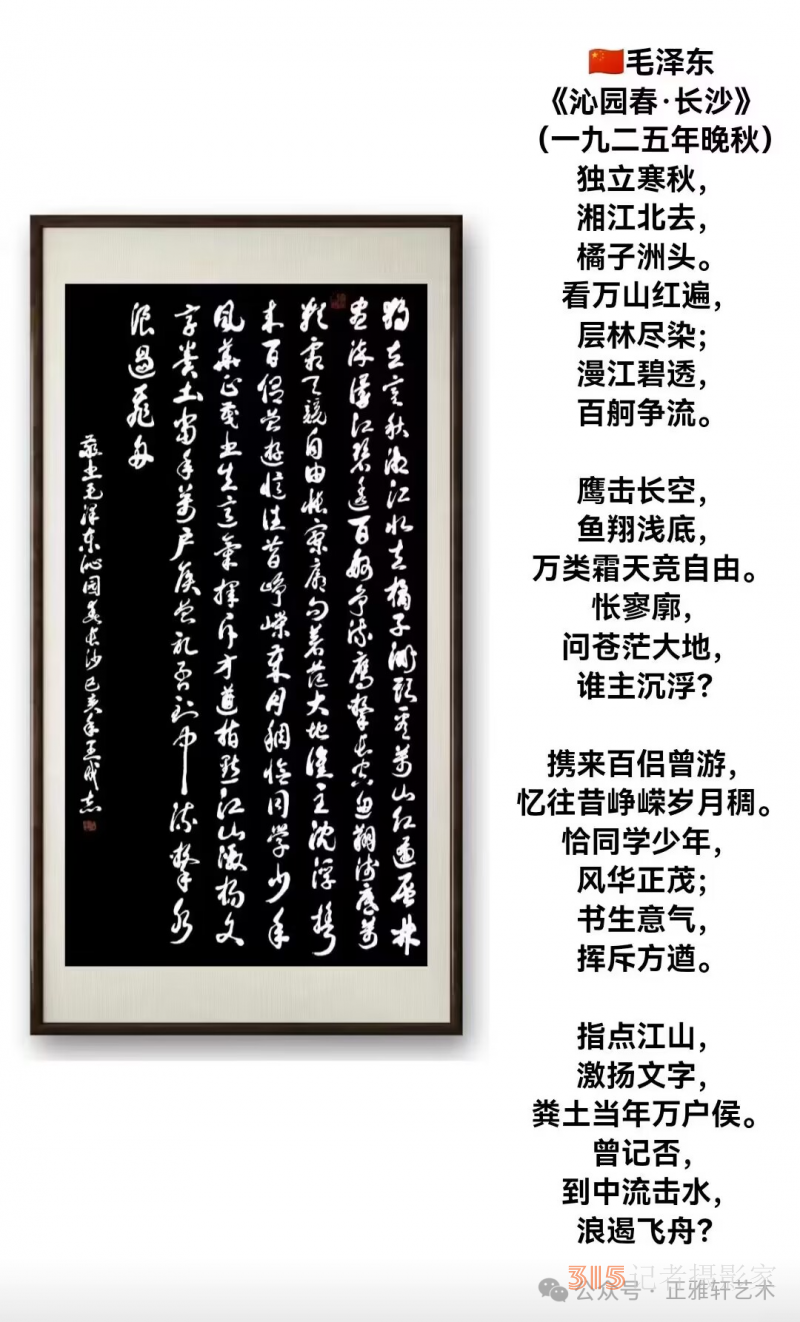 獨立寒秋湘江北去橘子洲頭看萬山紅遍層林
盡染漫江碧透百舸争流鷹擊長空魚翔淺底萬
類霜天競自由悵寥廓问蒼茫大地誰主沈浮携
来百侣曾遊憶往昔崢嶸歲月稠恰同學少年
風華正茂书生意氣揮斥方遒指點江山激揚文
字粪土當年萬户侯曾記否到中流擊水
浪遏飛舟
敬书毛澤東沁园春長沙己亥年王成志
🇨🇳毛泽东
《沁园春·长沙》
（一九二五年晚秋）
独立寒秋，
湘江北去，
橘子洲头。
看万山红遍，
层林尽染；
漫江碧透，
百舸争流。
鹰击长空，
鱼翔浅底，
万类霜天竞自由。
怅寥廓，
问苍茫大地，
谁主沉浮？
携来百侣曾游，
忆往昔峥嵘岁月稠。
恰同学少年，
风华正茂；
书生意气，
挥斥方遒。
指点江山，
激扬文字，
粪土当年万户侯。
曾记否，
到中流击水，
浪遏飞舟？
315记者摄影家
公众号 · 正雅轩艺术